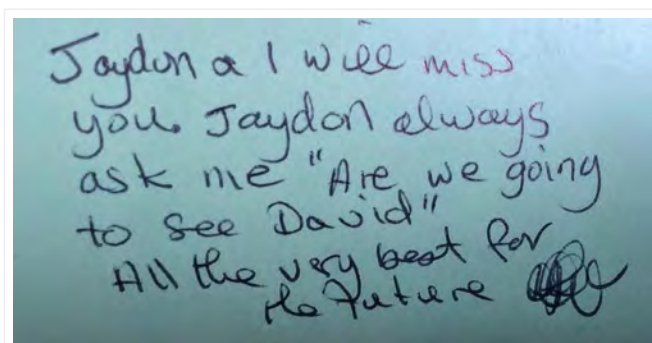 Jaydon & I will miss
you. Jaydon always
ask me "Are we going
to see David"
All the very best for
the future